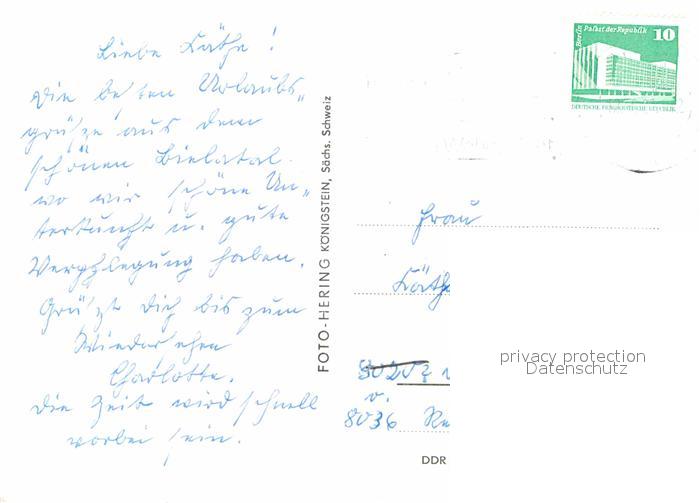 Liebe Käthe!
Die besten Urlaubs„
grüße aus dem
schönen Bielatal.
wo wir schöne Un„
terkunft u. gute
Verpflegung haben.
Grüßt Dich bis zum
Wiedersehen
Charlotte.
Die Zeit wird schnell
vorbei sein.
FOTO-HERING KÖNIGSTEIN, Sächs. Schweiz
Berlin Palast der Republik 10
DEUTSCHE DEMOKRATISCHE REPUBLIK
Frau
Käthe
8036
privacy protection
Datenschutz
DDR